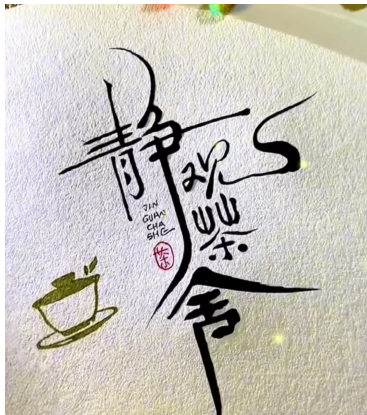 静观茶舍
JIN
GUAN
CHA
SHE